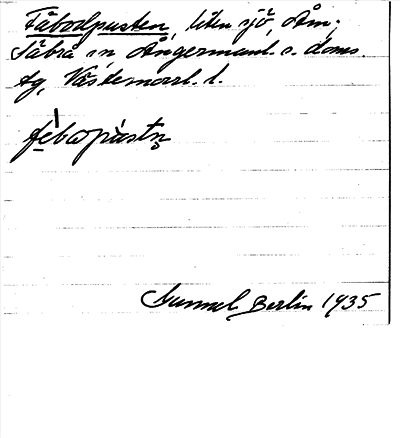 Fäbodpusten, liten sjö, Ån,
Säbrå sn Ångermanl. s. doms.
tg, Västernorrl. l.
fèbωpùstn̥
Gunnel Berlin 1935